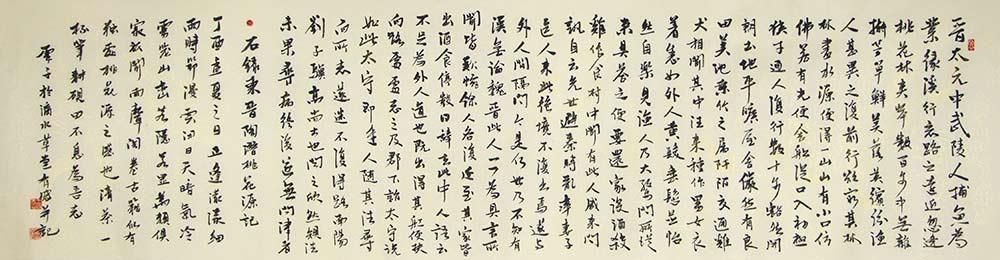 晋太元中武陵人捕鱼為
業缘溪行忘路之遠近忽逢
桃花林夹岸數百步中無雜
樹芳草鲜美落英繽紛漁
人甚異之復前行欲窮其林
林盡水源便得一山山有小口仿
佛若有光便舍船從口入初極
狹才通人復行數十步豁然開
朗土地平曠屋舍儼然有良
田美池桑竹之属阡陌交通雞
犬相聞其中往来種作男女衣
著悉如外人黄髮垂髫並怡
然自樂見漁人乃大驚問所從
来具答之便要還家設酒殺
雞作食村中聞有此人咸来問
訊自云先世避秦時亂率妻子
邑人来此绝境不復出焉遂与
外人間隔問今是何世乃不知有
漢無論魏晋此人一一為具言所
聞皆嘆惋餘人各復延至其家皆
出酒食停數日辞去此中人語云
不足為外人道也既出得其船便扶
向路處處志之及郡下詣太守說
如此太守即遣人随其往尋
向所志遂迷不復得路南陽
劉子驥高尚士也聞之欣然規往
未果尋病終後遂無問津者
右錄東晋陶潜桃花源記
丁酉 夏之日正逢濛濛细
雨時節 日天時氣冷
雲岩山
家 聞雨聲 閱卷古籍
桃花源之 也清茶一
筆耕硯田不息 吾志
於滴水草堂 并記